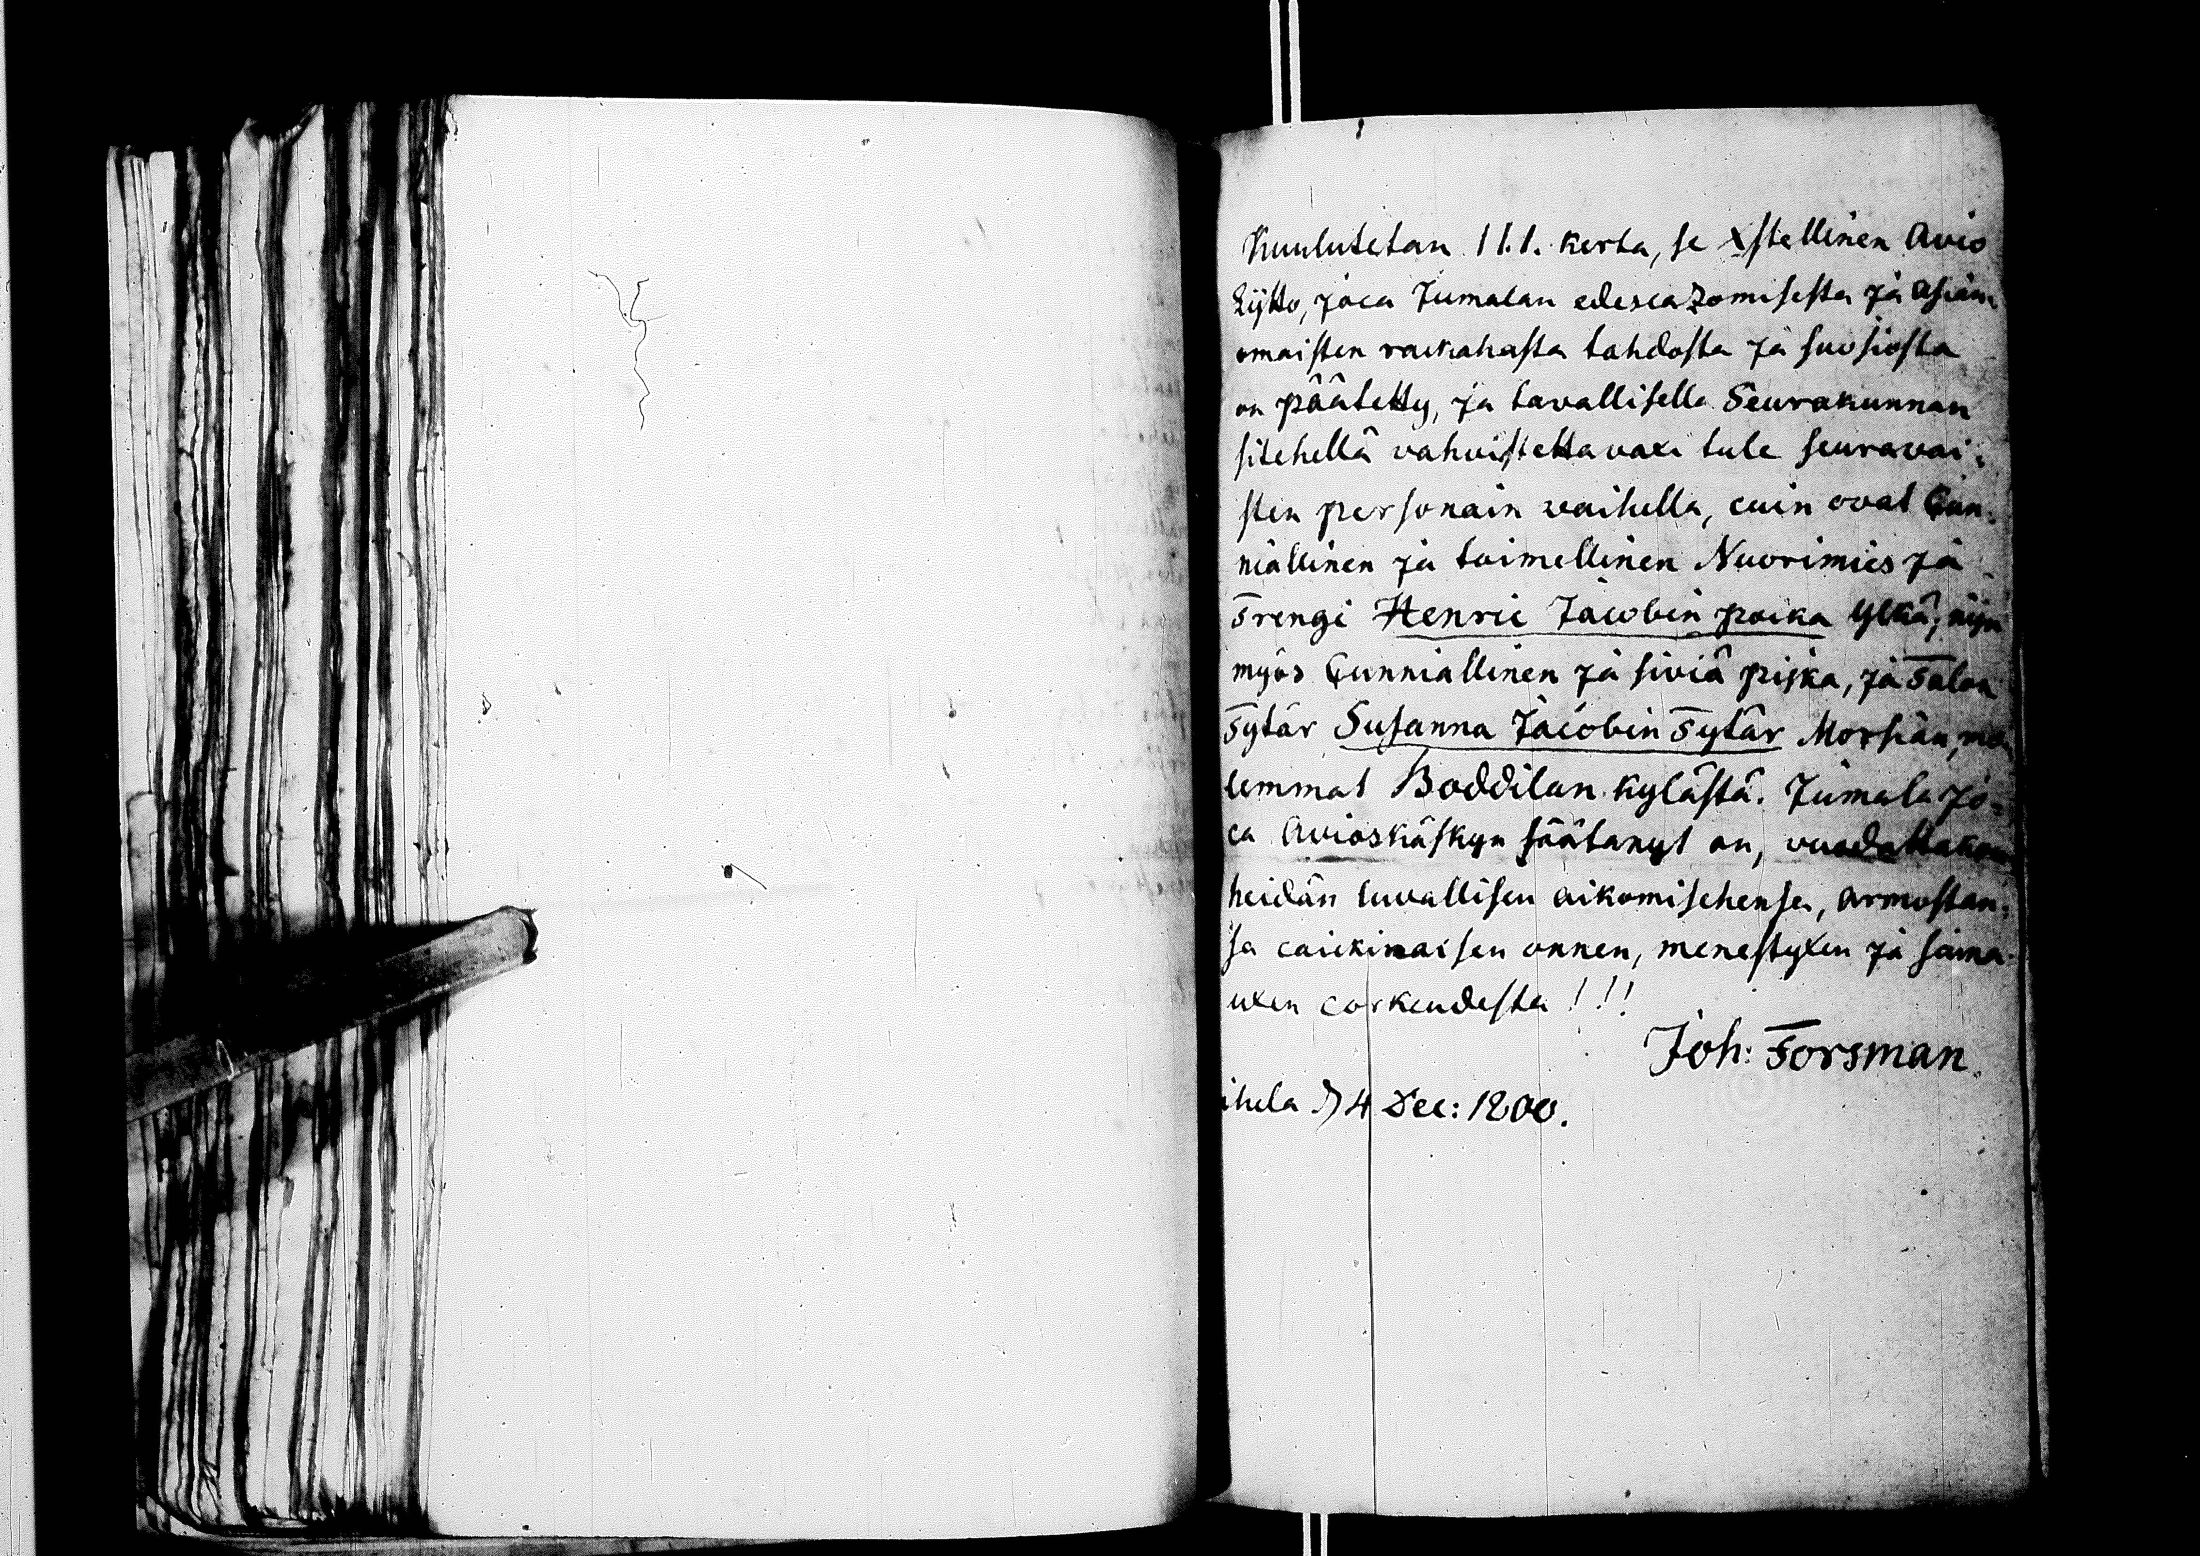 Kuulutetan 1 1. 1. kerta, se Xstellinen Avio
Lijtto, joca Jumalan edescazomisesta ja Asian-
omaisten rackahasta tahdosta ja suosiosta
on päätetty, ja tavallisella Seurakunnan
sitehellä vahvistettavaxi tule seuravai-
sten personain vaihella, cuin ovat Cun-
niallinen ja toimellinen Nuorimies ja
Trengi Henric Jacobin poika Ylkä, nijn
myös Cunniallinen ja siviä pijka, ja Talon
Tytär Susanna Jacobin Tytär Morsian, mo-
lemmat Boddilan kylästä. Jumala jo-
ca Avioskäskyn säätänyt on, vuodattakon
heidän luvallisen aikomisehensa, Armostan-
sa caickinaisen onnen, menestyxen ja siuna-
uxen corkeudesta!!!
Joh: Forsman.
ihela D 4 Dec: 1800.